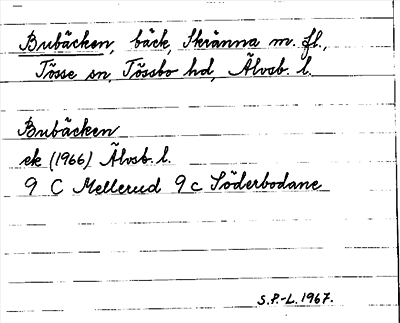 Bubäcken, bäck, Skränna m. fl.,
Tösse sn, Tössbo hd, Älvsb. l.
Bubäcken
ek (1966) Älvsb. l.
9 C Mellerud 9 c Söderbodane
S.P.-L. 1967.